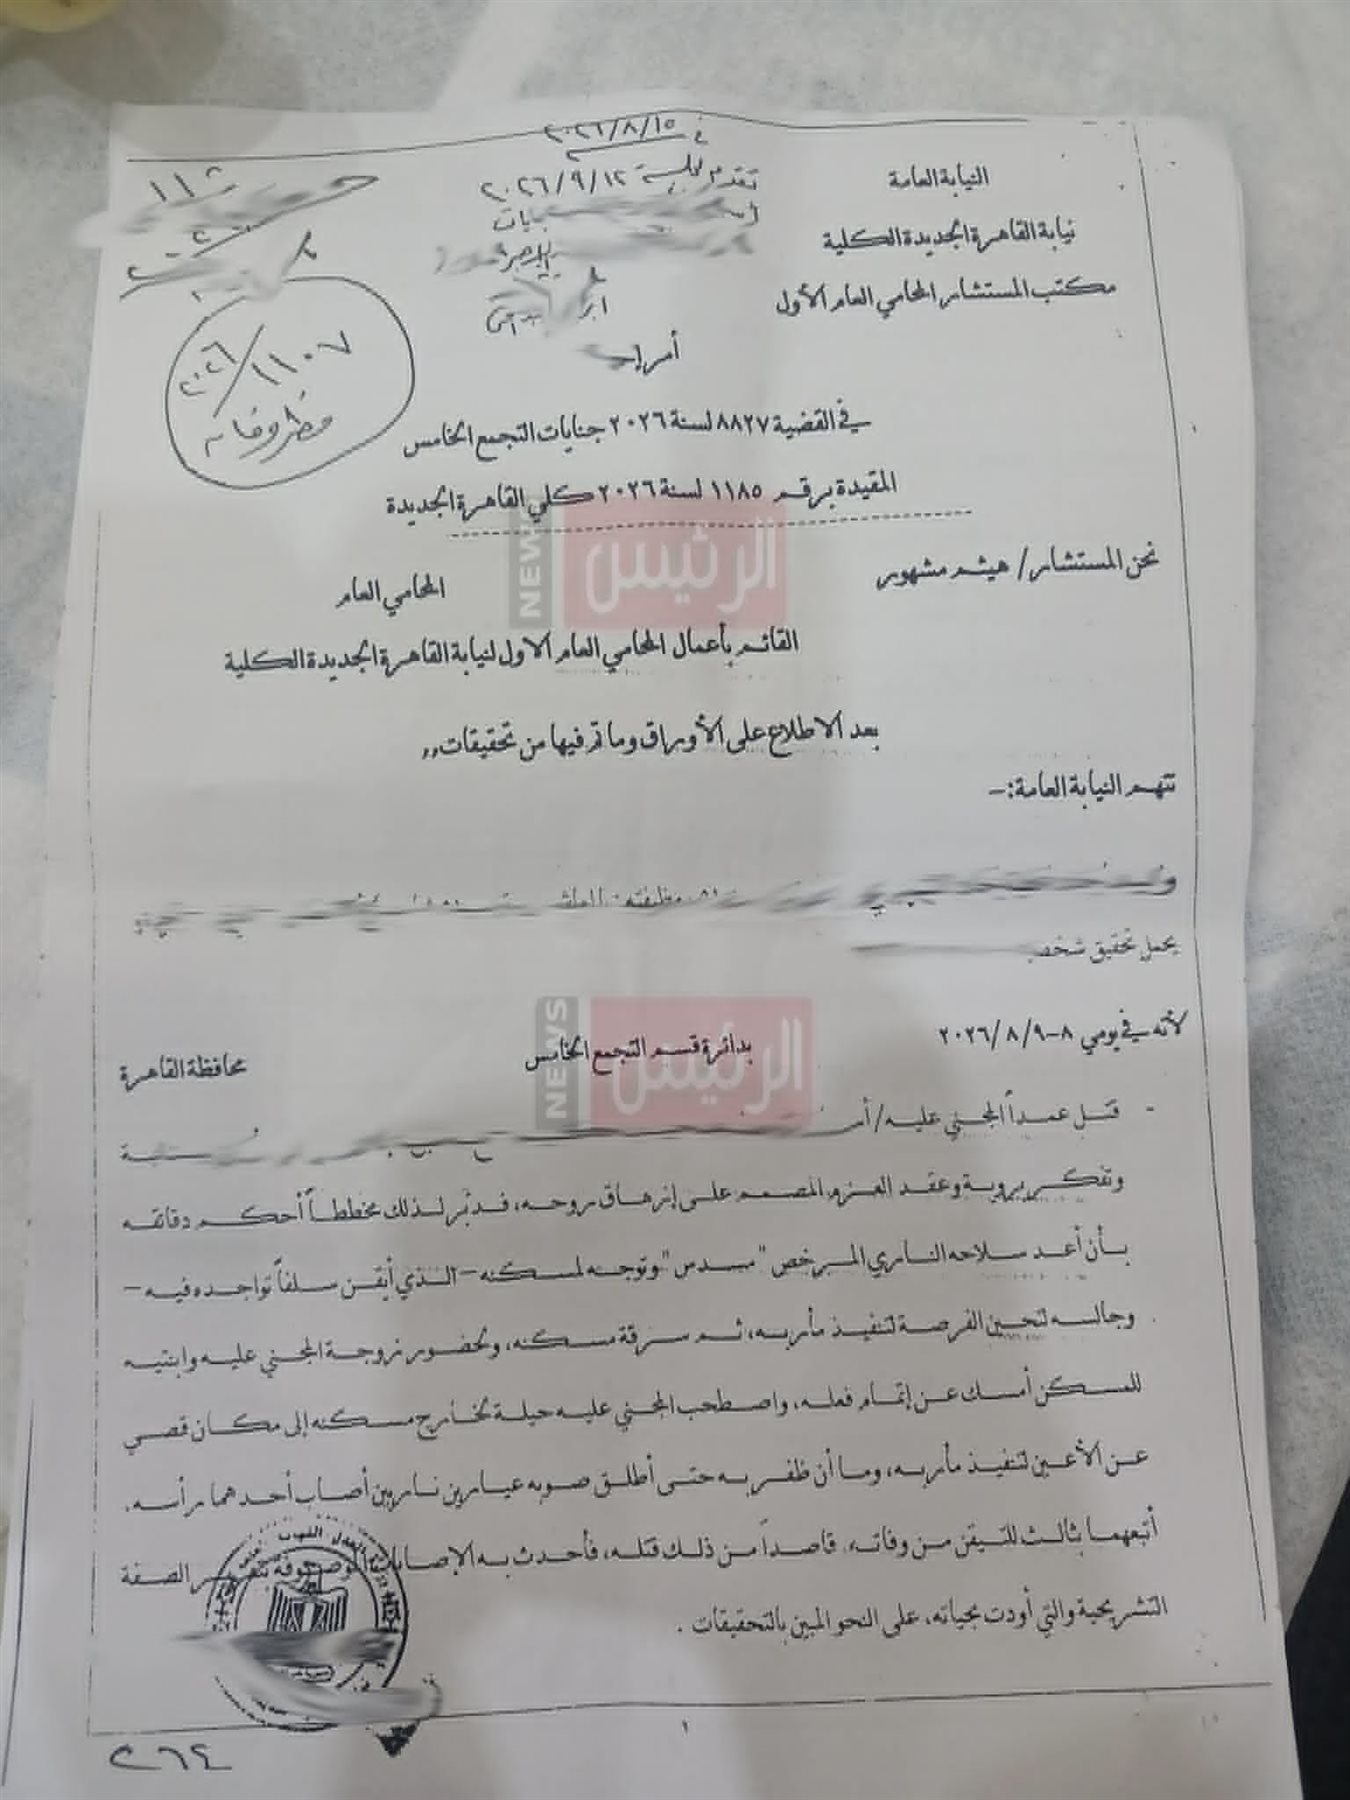 ٢٠٢٦/٨/١٥
النيابة العامة
نيابة القاهرة الجديدة الكلية
مكتب المستشار المحامي العام الأول
تقدم لجلسة ٢٠٢٦/٩/١٢
أمر إح
١١٠٧ / ٢٠٢٦
في القضية ٨٨٢٧ لسنة ٢٠٢٦ جنايات التجمع الخامس
المقيدة برقم ١١٨٥ لسنة ٢٠٢٦ كلي القاهرة الجديدة
الرئيس NEWS
نحن المستشار/ هيثم مشهور المحامي العام
القائم بأعمال المحامي العام الاول لنيابة القاهرة الجديدة الكلية
بعد الاطلاع على الأوراق وما تم فيها من تحقيقات,,
تتهم النيابة العامة:-
يحمل تحقيق شخص
لأنه في يومي ٨-٢٠٢٦/٨/٩ بدائرة قسم التجمع الخامس محافظة القاهرة
الرئيس NEWS
- قتل عمداً المجني عليه/
وتفكر بروية وعقد العزم المصمم على إزهاق روحه، فدبَّر لذلك مخططاً أحكم دقائقه
بأن أعد سلاحه الناري المرخص "مسدس" وتوجه لمسكنه -الذي أيقن سلفاً تواجده فيه-
وجالسه لتحين الفرصة لتنفيذ مأربه، ثم سرقة مسكنه، ولحضور زوجة المجني عليه وابنتيه
للمسكن أمسك عن إتمام فعله، واصطحب المجني عليه حيلة لخارج مسكنه إلى مكان قصي
عن الأعين لتنفيذ مأربه، وما أن ظفر به حتى أطلق صوبه عيارين ناريين أصاب أحدهما رأسه.
أتبعهما بثالث للتيقن من وفاته. قاصداً من ذلك قتله، فأحدث به الإصابات الموصوفة بتقرير الصفة
التشريحية والتي أودت بحياته، على النحو المبين بالتحقيقات .
١
٢٦٤